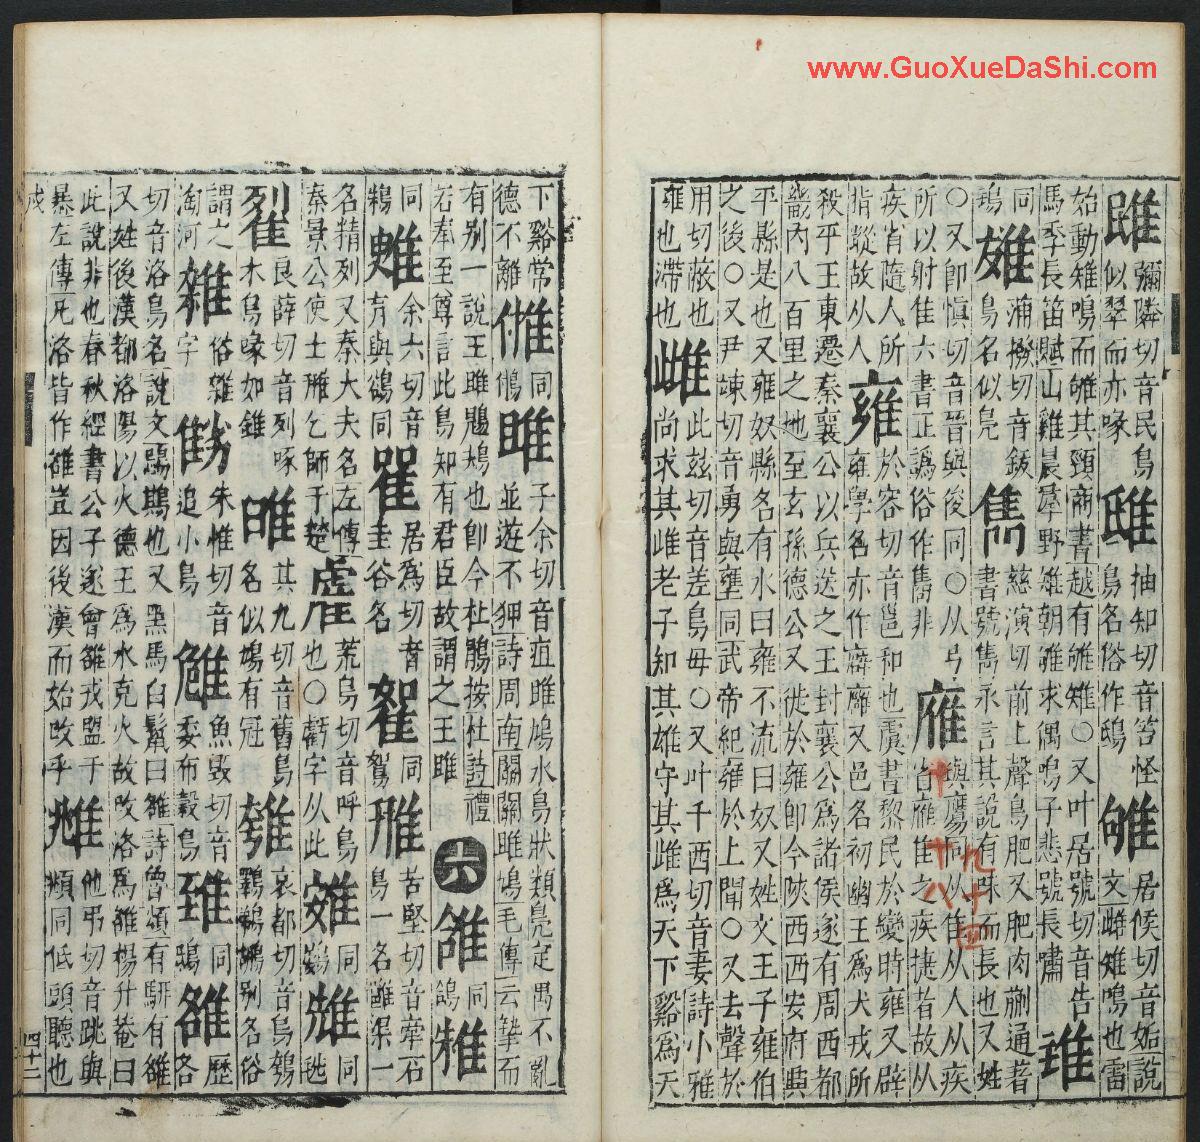 彌隣切音民鳥似翠而赤喙 抽知切音笞怪鳥名俗作鴟 雊居侯切音姤說文雌雉鳴也雷
始動雉鳴而雊其頸商書越有雊雉○又叶居號切音告馬季長笛賦山雞晨羣野雉朝雊求偶鳴子悲號長嘯 琟
同鴇 蒲撥切音鈸鳥名似鳧 雋慈演切前上聲鳥肥又肥肉蒯通着書號雋永言其說有味而長也又姓
○又卽愼切音晉與俊同○从弓所以射隹六書正譌俗作雋非 䧹與鷹同从隹从人从疾省䧹隹之疾捷者故从
疾省隨人所指蹤故从人 雍於容切音邕和也虞書黎民於變時雍又辟雍學名亦作廱廱又邑名初幽王爲犬戎所
殺平王東遷秦襄公以兵送之王封襄公爲諸侯遂有周西都畿內八百里之地至玄孫德公又徙於雍卽今陝西西安府興
平縣是也又雍奴縣名有水曰雍不流曰奴又姓文王子雍伯之後○又尹竦切音勇與壅同武帝紀雍於上聞○又去聲於
用切蔽也雍也滯也 雌此玆切音差鳥母○又叶千西切音妻詩小雅尚求其雌老子知其雄守其雌爲天下谿爲天
下谿常德不離 同鵂 雎子余切音疽雎鳩水鳥狀類鳧定偶不亂並遊不狎詩周南關關雎鳩毛傳云摯而
有別一說王雎鵰鳩也卽今杜鵑按杜詩禮若奉至尊言此鳥知有君臣故謂之王雎 六 同鴿
同 余六切音育與鵒同 居爲切音圭谷名 同鴽 雃苦堅切音牽石鳥一名雝渠一
名精列又秦大夫名左傳秦景公使士雃乞師于楚 荒烏切音呼鳥也○虧字从此 同 同
良薛切音列啄木鳥喙如錐 其九切音舊鳥名似鳩有冠 哀都切音烏 鵜鶘別名俗
謂之淘河 俗雜字 朱惟切音追小鳥 魚毁切音委布穀鳥 同鵄 雒歷各
切音洛鳥名說文 也又黑馬白鬣曰雒詩魯頌有騂有雒又姓後漢都洛陽以火德王爲水克火故改洛爲雒楊升菴曰
此說非也春秋經書公子遂會雒戎盟于暴左傳凡洛皆作雒豈因後漢而始改乎 他弔切音跳與頫同低頭聽也
戍
四十二
www.GuoXueDaShi.com